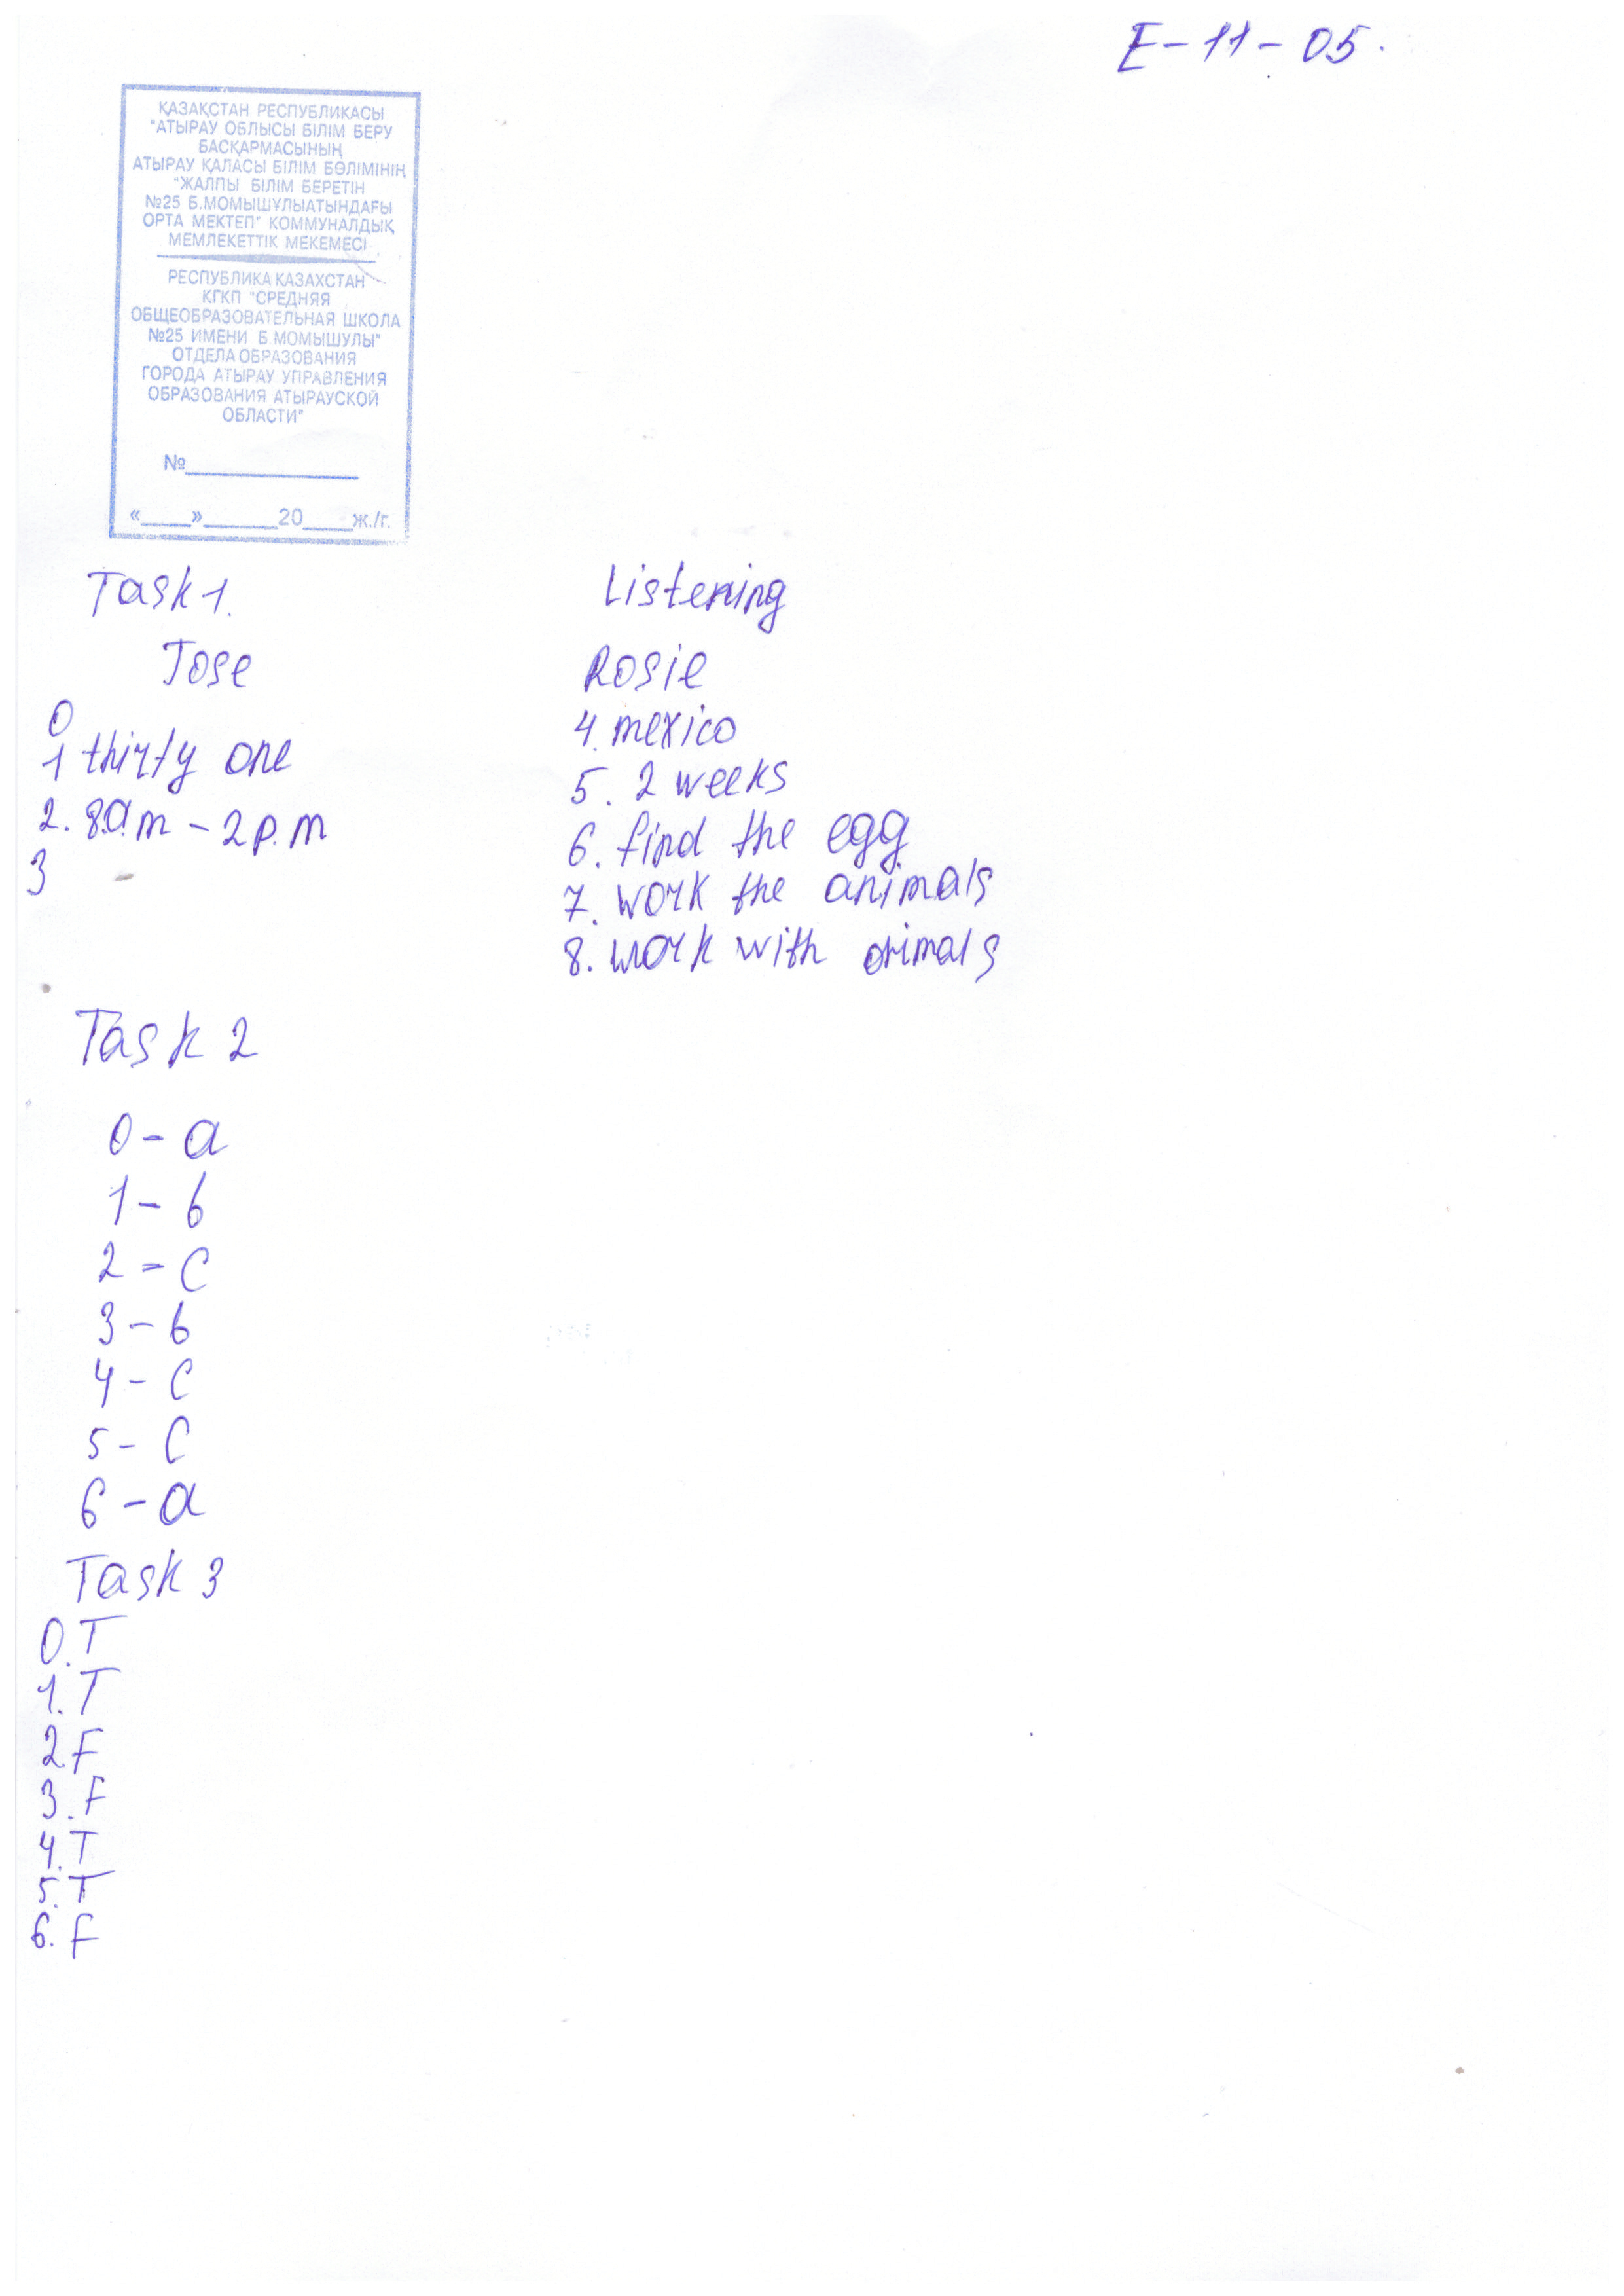 E-11-05.
ҚАЗАҚСТАН РЕСПУБЛИКАСЫ
"АТЫРАУ ОБЛЫСЫ БІЛІМ БЕРУ
БАСҚАРМАСЫНЫҢ
АТЫРАУ ҚАЛАСЫ БІЛІМ БӨЛІМІНІҢ
"ЖАЛПЫ БІЛІМ БЕРЕТІН
№25 Б.МОМЫШҰЛЫАТЫНДАҒЫ
ОРТА МЕКТЕП" КОММУНАЛДЫҚ
МЕМЛЕКЕТТІК МЕКЕМЕСІ
РЕСПУБЛИКА КАЗАХСТАН
КГКП "СРЕДНЯЯ
ОБЩЕОБРАЗОВАТЕЛЬНАЯ ШКОЛА
№25 ИМЕНИ Б МОМЫШУЛЫ"
ОТДЕЛА ОБРАЗОВАНИЯ
ГОРОДА АТЫРАУ УПРАВЛЕНИЯ
ОБРАЗОВАНИЯ АТЫРАУСКОЙ
ОБЛАСТИ"
№____________
«____»______20____ж./г.
Task 1.
Jose
0
1 thirty one
2. 8a.m - 2p.m
3 -
Listening
Rosie
4. mexico
5. 2 weeks
6. find the egg
7. work the animals
8. work with animals
Task 2
0 - a
1 - b
2 - c
3 - b
4 - c
5 - c
6 - a
Task 3
0. T
1. T
2. F
3. F
4. T
5. T
6. F